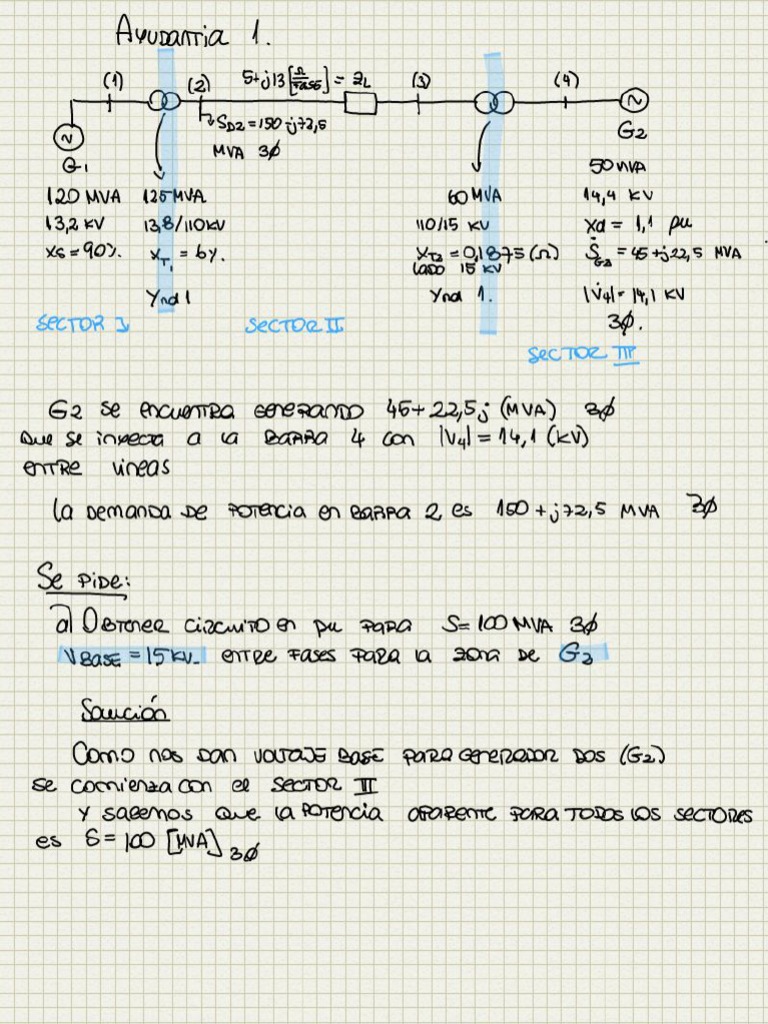 Ayudantia 1.
(1) (2) 5+j13[Ω/FASE] = ZL (3) (4)
SD2=150+j72,5
MVA 3Ø
G1
G2
120 MVA 125 MVA 60 MVA 50 MVA
13,2 kV 13,8/110kV 110/15 kV 14,4 kV
Xs=90%. XT1 = 6%. XT2 = 0,1875 (Ω) Xd = 1,1 pu
LADO 15 KV
SG2 = 45+j22,5 MVA
Ynd 1 Ynd 1. |V4|= 14,1 kV
3Ø.
SECTOR I SECTOR II
SECTOR III
G2 SE ENCUENTRA GENERANDO 45+22,5j (MVA) 3Ø
QUE SE INYECTA A LA BARRA 4 CON |V4|=14,1 (KV)
ENTRE LINEAS
La DEMANDA DE POTENCIA EN BARRA 2 ES 150+j72,5 MVA 3Ø
Se PIDE:
a) OBTENER CIRCUITO EN pu PARA S=100 MVA 3Ø
VBASE = 15 KV. ENTRE FASES PARA LA ZONA DE G2
Solución
Como nos DAN VOLTAJE BASE PARA GENERADOR DOS (G2)
se comienza con el SECTOR III
Y SABEMOS QUE LA POTENCIA APARENTE PARA TODOS LOS SECTORES
es S= 100 [MVA] 3Ø